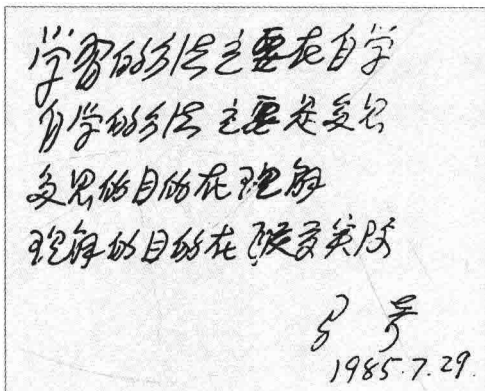 学习的方法主要在自学
自学的方法主要是多思
多思的目的在理解
理解的目的在改变实际
1985.7.29.